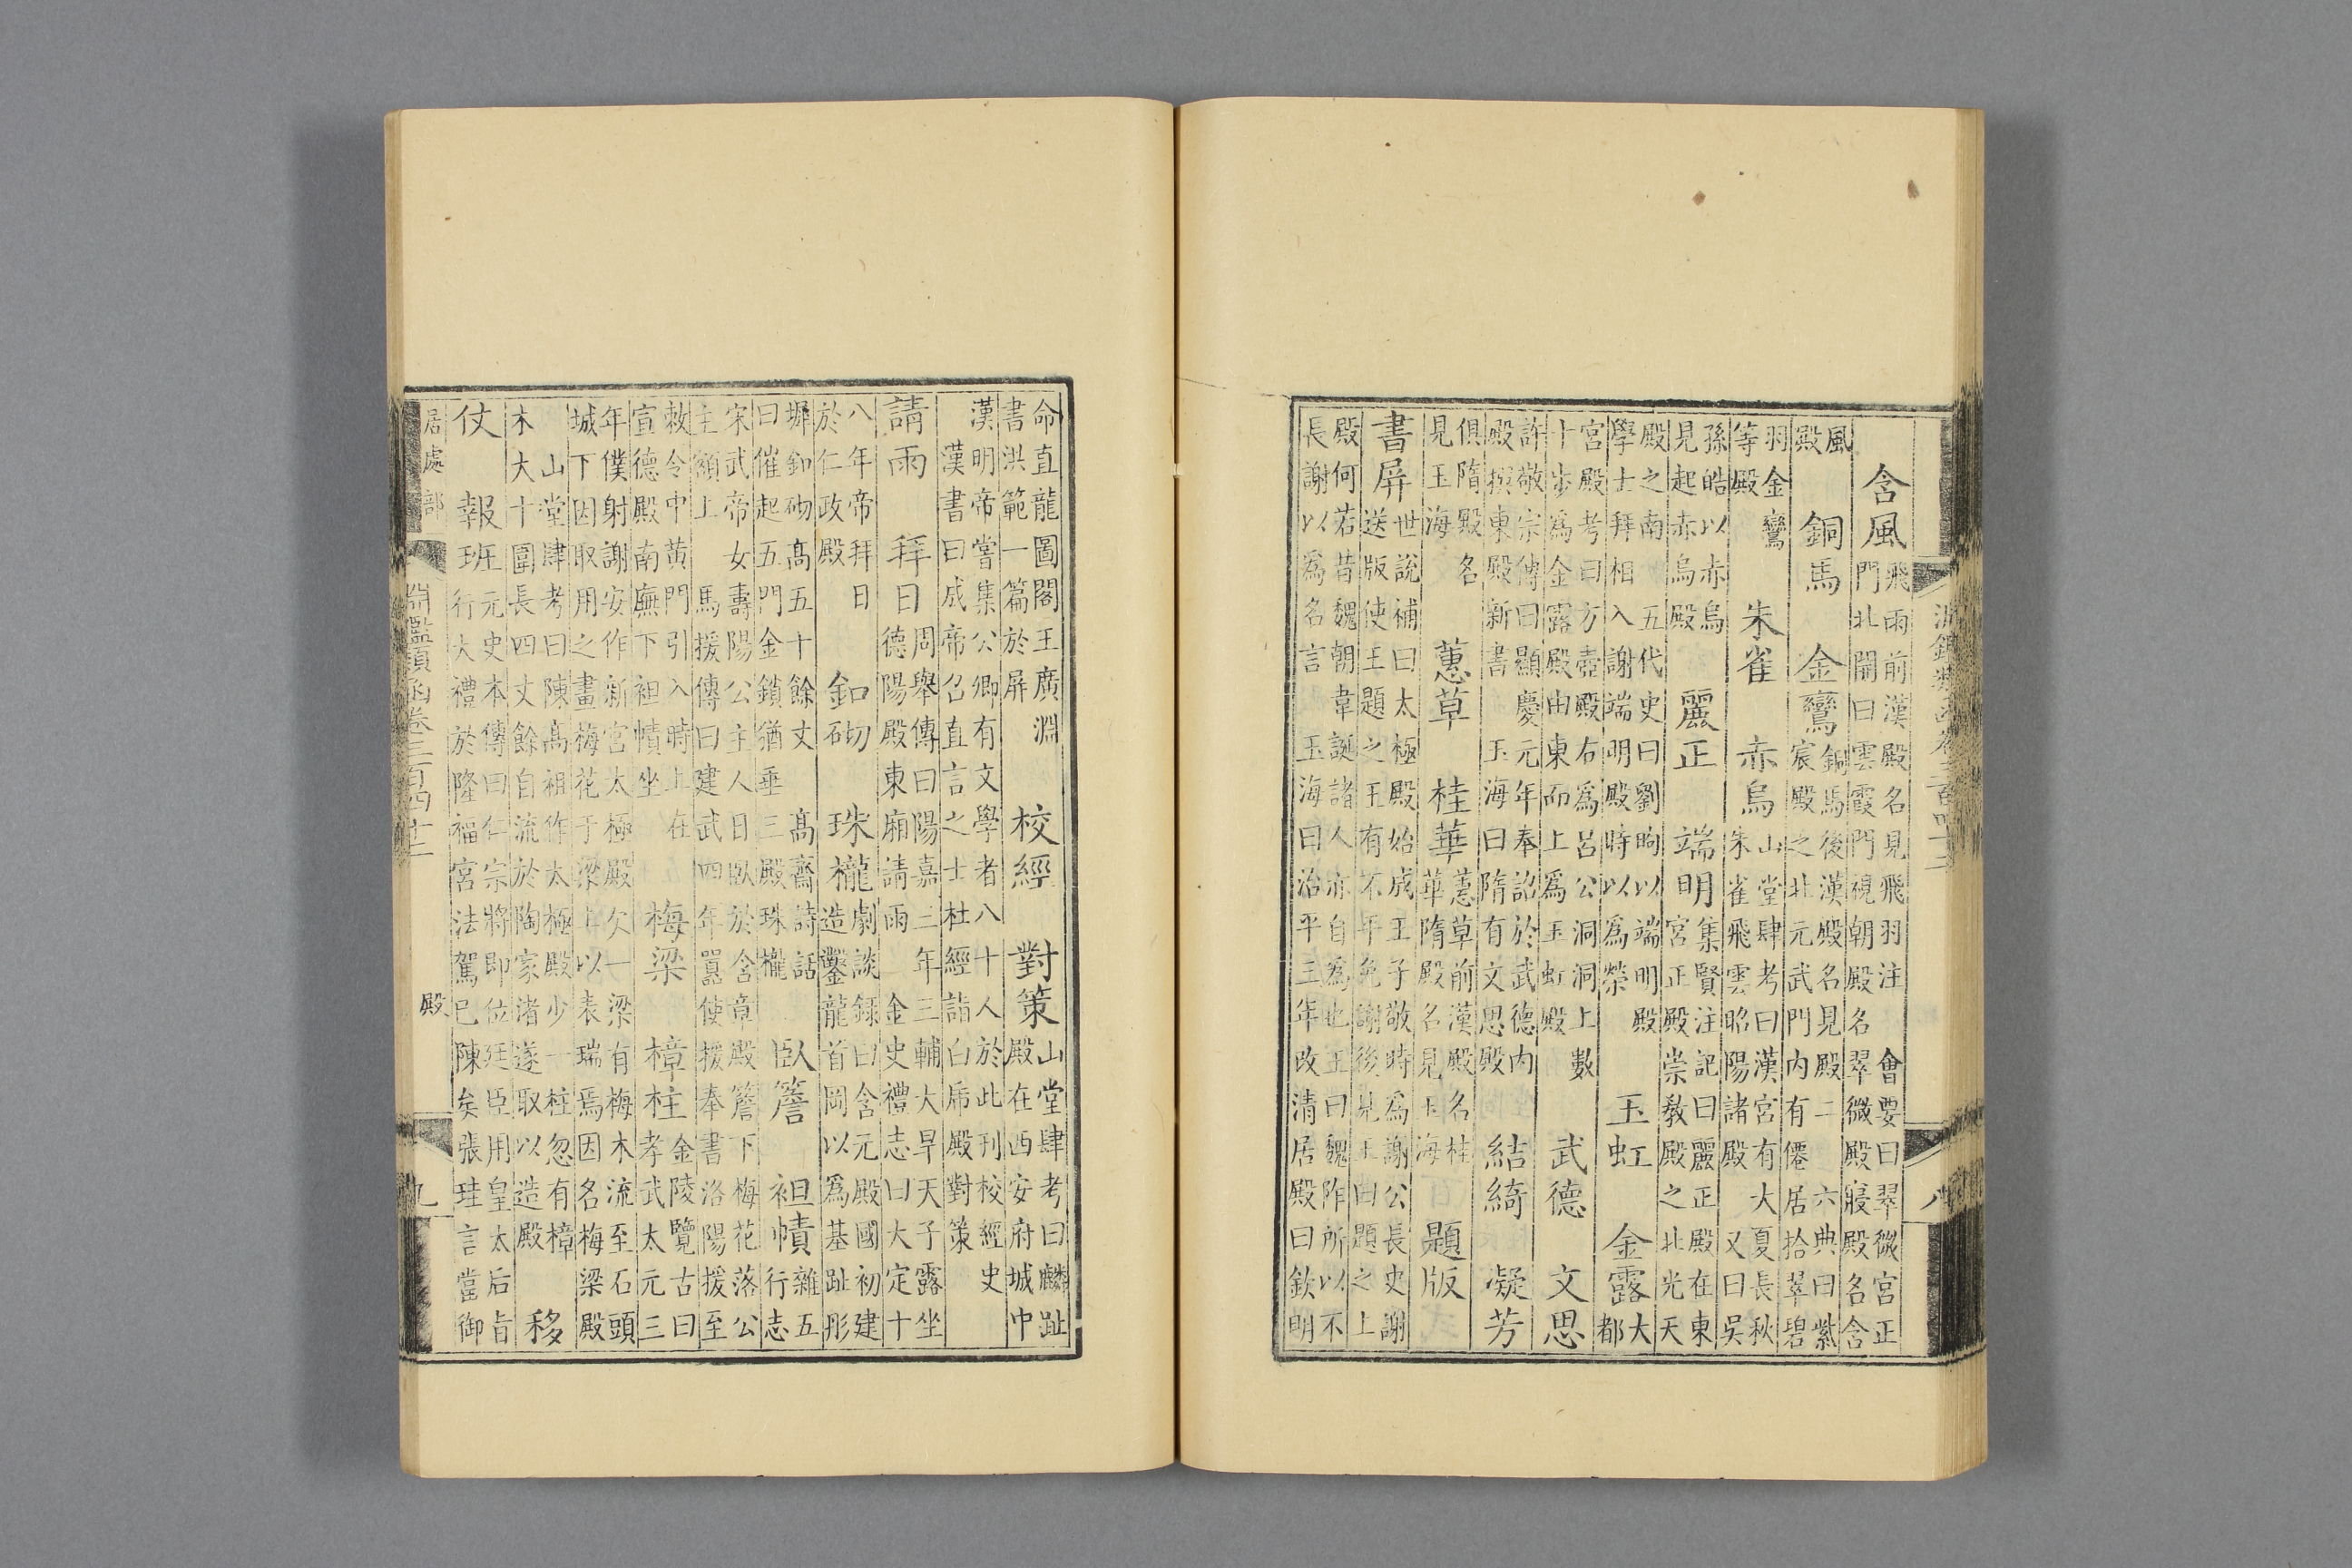 淵鑑類函卷三百四十二 八
含風 飛雨前漢殿名見飛羽注 會要曰翠微宮正
門北開曰雲霞門視朝殿名翠微殿寢殿名含
風
殿 銅馬 金鑾 銅馬後漢殿名見殿二 六典曰紫
宸殿之北元武門內有僊居拾翠碧
羽金鑾
等殿 朱雀 赤烏 山堂肆考曰漢宮有大夏長秋
朱雀飛雲昭陽諸殿 又曰吳
孫皓以赤烏
見起赤烏殿 麗正 端明 集賢注記曰麗正殿在東
宮正殿殿崇教殿之北光天
殿之南 五代史曰劉昫以端明殿
學士拜相入謝端明殿時以為榮 玉虹 金露 大
都
宮殿考曰方壺殿右為呂公洞洞上數
十步為金露殿由東而上為玉虹殿 武德 文思
許敬宗傳曰顯慶元年奉詔於武德內
殿撰東殿新書 玉海曰隋有文思殿 結綺 凝芳
俱隋殿名
見玉海 蕙草 桂華 蕙草前漢殿名桂
華隋殿名見玉海 題版
書屏 世說補曰太極殿始成王子敬時為謝公長史謝
送版使王題之王有不平免謝後見王曰題之上
殿何若昔魏朝韋誕諸人亦自為也王曰魏阼所以不
長謝以為名言 玉海曰治平三年改清居殿曰欽明
命直龍圖閣王廣淵
書洪範一篇於屏 校經 對策 山堂肆考曰麟趾
殿在西安府城中
漢明帝嘗集公卿有文學者八十人於此刊校經史
漢書曰成帝召直言之士杜經詣白虎殿對策
請雨 拜日 周舉傳曰陽嘉三年三輔大旱天子露坐
德陽殿東廂請雨 金史禮志曰大定十
八年帝拜日
於仁政殿 釦砌 珠櫳 劇談錄曰含元殿國初建
造鑿龍首岡以為基趾彤
墀釦砌高五十餘丈 高齋詩話
曰催起五門金鎖猶垂三殿珠櫳 臥簷 袒幘 雜五
行志
宋武帝女壽陽公主人日臥於含章殿簷下梅花落公
主額上 馬援傳曰建武四年囂使援奉書洛陽援至
敕令中黃門引入時上在
宣德殿南廡下袒幘坐 梅梁 樟柱 金陵覽古曰
孝武太元三
年僕射謝安作新宮太極殿欠一梁有梅木流至石頭
城下因取用之畫梅花于梁上以表瑞焉因名梅梁殿
山堂肆考曰陳高祖作太極殿少一柱忽有樟
木大十圍長四丈餘自流於陶家渚遂取以造殿 移
仗 報班 元史本傳曰仁宗將即位廷臣用皇太后旨
行大禮於隆福宮法駕已陳矣張珪言當御
居處部 淵鑑類函卷三百四十二 殿 九